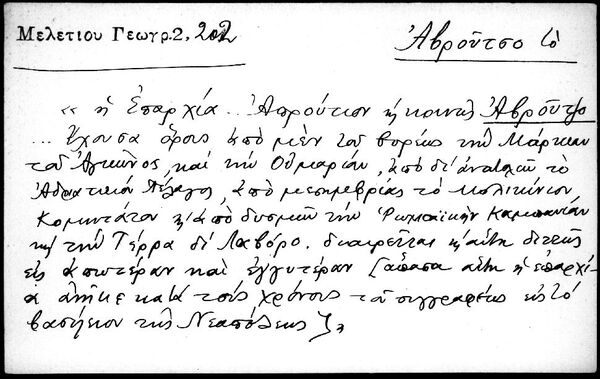 Μελετίου Γεωγρ. 2, 202
Ἀβροῦτσο τὸ
« ἡ Ἐπαρχία .. Ἀπρούτιον ἢ κοινῶς Ἀβροῦτζο
... ἔχουσα ὅρους ἀπὸ μὲν τοῦ βορέως τὴν Μάρκαν
τοῦ Ἀγκῶνος, καὶ τὴν Οὐμβρίαν, ἀπὸ δὲ ἀνατολῶν τὸ
Ἀδριατικὸν Πέλαγος, ἀπὸ μεσημβρίας τὸ Μολισίνον
Κομιντάτον κ' ἀπὸ δυσμῶν τὴν Ρωμαϊκὴν Καμπανίαν
κ' τὴν Τέρρα δὶ Λαβόρο. διαιρεῖται κ' αὕτη διττῶς
εἰς ἀπωτέραν καὶ ἐγγυτέραν [ἅπασα αὕτη ἡ ἐπαρχί-
α ἀνῆκε κατὰ τοὺς χρόνους τοῦ συγγραφέως εἰς τὸ
βασίλειον τῆς Νεαπόλεως]»